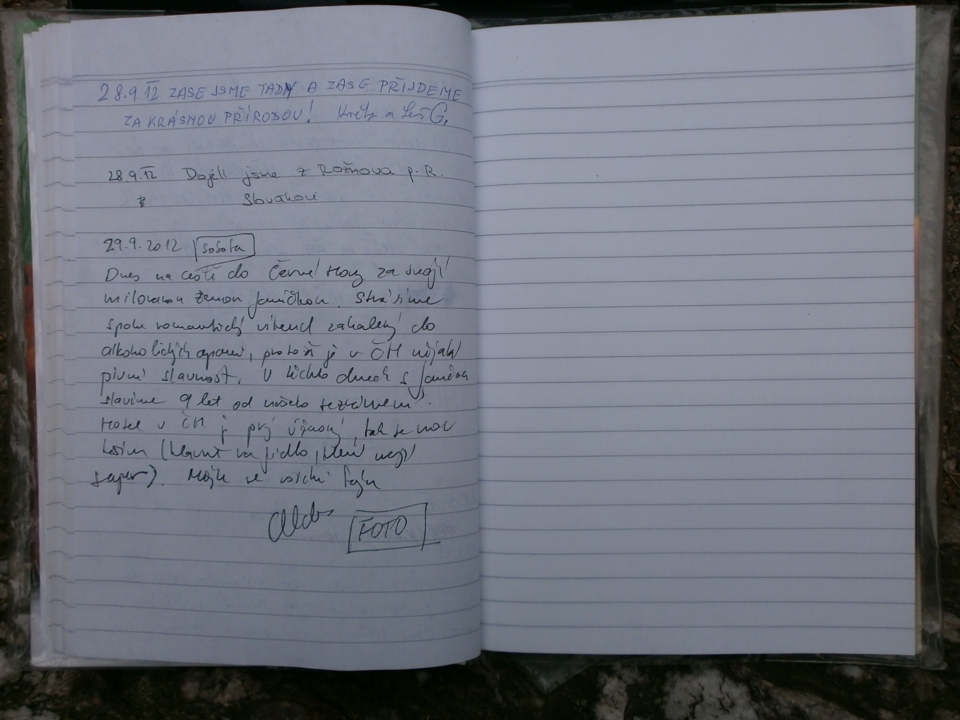 28.9.12 ZASE JSME TADY A ZASE PŘIJDEME
ZA KRÁSNOU PŘÍRODOU! a
28.9.12 Dojeli jsme z Rožnova p. R.
Slovákovi
29.9.2012 sobota
Dnes na cestě do Černé Hory za svojí
milovanou ženou Janičkou. Strávíme
spolu romantický víkend zahalený do
alkoholických oparů, protože je v ČH nějaká
pivní slavnost. V těchto dnech s Janičkou
slavíme 9 let od našeho seznámení.
Hotel v ČH je prý výborný, tak se moc
těším (hlavně na jídlo, které mají
super). Mějte se všichni fajn
FOTO